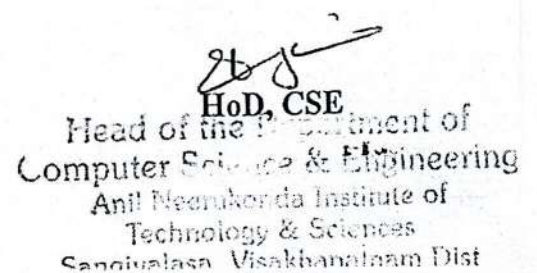 HoD, CSE
Head of the Department of
Computer Science & Engineering
Anil Neerukonda Institute of
Technology & Sciences
Sangivalasa, Visakhapatnam Dist